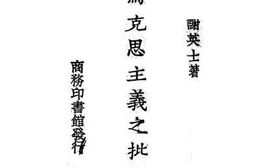 謝英士著
克思主義之批
商務印書館發行